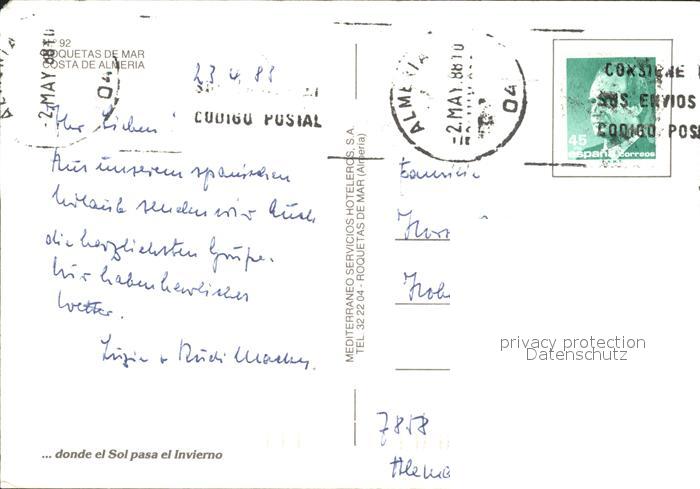 92
ROQUETAS DE MAR
COSTA DE ALMERIA
23.4.88
-2.MAY.88 10
04
CODIGO POSTAL
Ihr Lieben!
Aus unserem spanischen
Urlaub senden wir Euch
die herzlichsten Grüße.
Wir haben herrliches
Wetter.
Luzia + Rudi
... donde el Sol pasa el Invierno
MEDITERRANEO SERVICIOS HOTELEROS, S.A.
TEL. 32 22 04 - ROQUETAS DE MAR (Almería)
ALMERIA
-2.MAY.88 10
04
CONSIGNE
SUS ENVIOS
CODIGO POS
45
españa correos
Familie
Hor
7858
Alema
privacy protection
Datenschutz